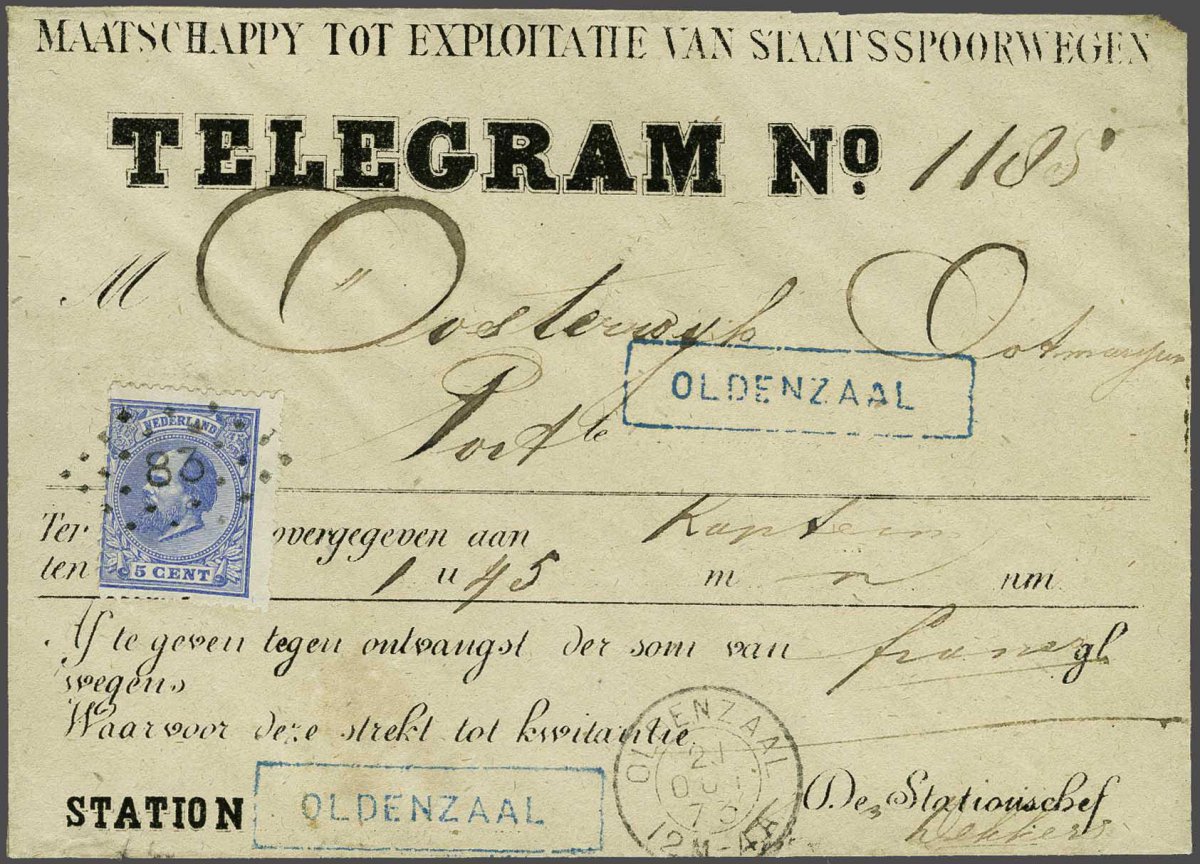 MAATSCHAPPY TOT EXPLOITATIE VAN STAATSSPOORWEGEN
TELEGRAM No. 1185
M Oosterwyk
OLDENZAAL
Port
NEDERLAND
83
5 CENT
Ter overgegeven aan
ten 1 u 45 m nm
Af te geven tegen ontvangst der som van franco gl
wegens
Waarvoor deze strekt tot kwitantie
OLDENZAAL
21
OCT
73
STATION OLDENZAAL
De Stationschef
Dekkers